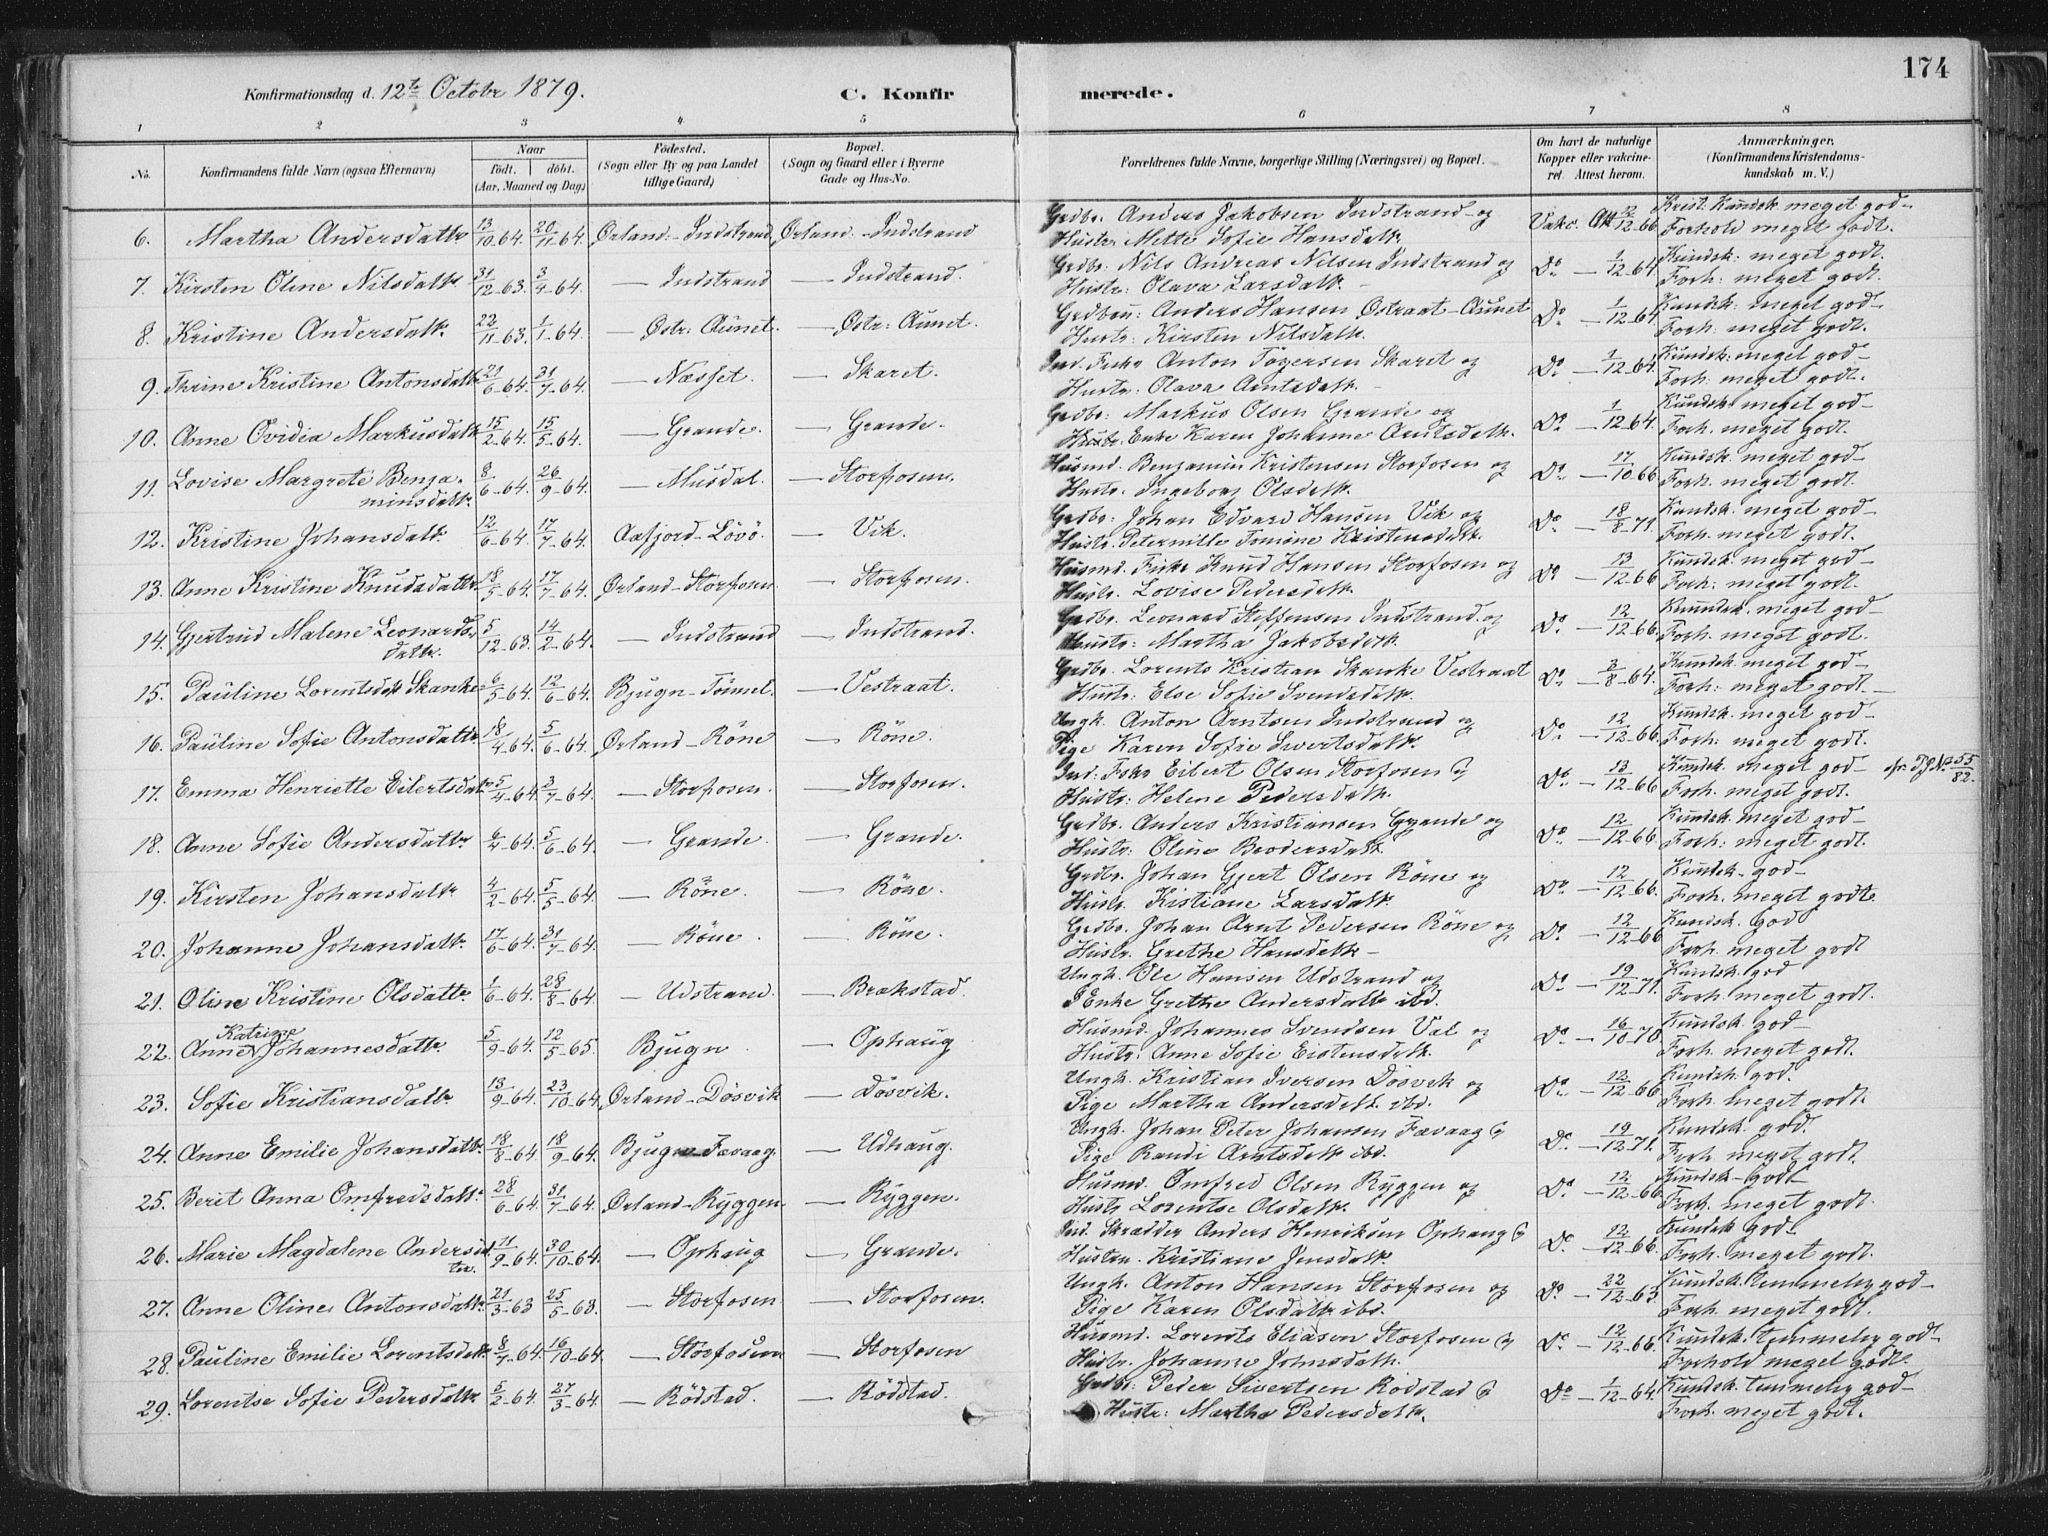 174
Konfirmationsdag d. 12te Octobr 1879. C. Konfirmerede.
1 2 3 4 5 6 7 8
No. Konfirmandens fulde Navn (ogsaa Efternavn) Naar födt. döbt. (Aar, Maaned og Dag) Födested. (Sogn eller By og paa Landet tillige Gaard) Bopæl. (Sogn og Gaard eller i Byerne Gade og Hus-No. Forældrenes fulde Navne, borgerlige Stilling (Næringsvei) og Bopæl. Om havt de naturlige Kopper eller vakcineret. Attest herom. Anmærkninger. (Konfirmandens Kristendomskundskab m. V.)
6. Martha Andersdattr 13/10 64. 20/11 64. Ørland-Indstrand Ørland-Indstrand Grdbr. Anders Jakobsen Indstrand og Vakc. Att 12/12 66. Krist. Kundsk meget god-
Hustr Mette Sofie Hansdattr. Forhold meget godt.
7. Kirsten Oline Nilsdattr. 31/12 63. 3/4 64. — Indstrand — Indstrand. Grdbr. Nils Andreas Nilsen Indstrand og Do — 1/12 64. Kundsk: meget god.
Hustr: Olava Larsdattr. Forh: meget godt.
8. Kristine Andersdattr. 22/11 63. 1/1 64. — Østr: Aunet. — Østr: Aunet. Grdbru: Anders Hansen Østraat-Aunet Do — 1/12 64. Kundsk: meget god-
Hustr: Kirsten Nilsdattr. Forh: meget godt.
9. Thrine Kristine Antonsdattr 21/6 64. 31/7 64. — Næsset. — Skaret. Ind. Fisker Anton Tøgersen Skaret og Do — 1/12 64. Kundsk: meget god-
Hustr: Olava Arntsdattr. Forh: meget godt.
10. Anne Ovidia Markusdattr 15/2 64. 15/5 64. — Grande. — Grande. Grdbr: Markus Olsen Grande og Do — 1/12 64. Kundsk. meget god-
Hustr. Enke Karen Johanne Arntsdattr. Forh. meget godt.
11. Lovise Margrete Benjaminsdattr. 8/6 64. 26/9 64. — Musdal. — Storfosen. Husmd. Benjamin Kristensen Storfosen og Do. — 17/10 66. Kundsk. meget god-
Hustr. Ingeborg Olsdattr. Forh. meget godt.
12. Kristine Johansdattr. 12/6 64. 17/7 64. Aafjord-Lövö. — Vik. Grdbr: Johan Edvard Hansen Vik og Do — 18/8 71. Kundsk. meget god-
Hustr. Petermille Tomine Kristensdattr. Forh. meget godt.
13. Anne Kristine Knudsdattr 18/5 64. 17/7 64. Ørland-Storfosen — Storfosen. Husmd. Fisker Knud Hansen Storfosen og Do — 13/12 66. Kundsk. meget god-
Hustr. Lovise Pedersdattr. Forh: meget godt.
14. Gjertrud Malene Leonardsdattr. 5/12 63. 14/2 64. — Indstrand — Indstrand. Grdbr. Leonard Steffensen Indstrand og Do. — 12/12 66. Kundsk. meget god-
Hustr: Martha Jakobsdattr. Forh. meget godt.
15. Pauline Lorentsdatt Skanke 6/5 64. 12/6 64. Bjugn-Tönnel. — Vestraat. Grdbr. Lorents Kristian Skanke Vestraat Do. — 3/8 64. Kundsk: meget god-
Hustr: Else Sofie Svendsdattr. Forh: meget godt.
16. Pauline Sofie Antonsdattr. 18/4 64. 5/6 64. Ørland-Röne — Röne. Ungk. Anton Arntsen Indstrand og Do. — 12/12 66. Kundsk. meget god-
Pige Karen Sofie Sivertsdattr. Forh: meget godt.
17. Emma Henriette Eilertsdattr 5/4 64. 3/7 64. — Storfosen. — Storfosen. Ind. Fskr Eilert Olsen Storfosen og Do — 13/12 66. Kundsk. meget god- cfr. TJNo 55/82.
Hustr: Helene Pedersdattr. Forh. meget godt.
18. Anne Sofie Andersdattr 6/4 64. 5/6 64. — Grande — Grande. Grdbr. Anders Kristiansen Grande og Do — 12/12 66. Kundsk. meget god-
Hustr: Oline Brodersdattr. Forh: meget godt.
19. Kirsten Johansdattr 4/2 64. 5/5 64. — Röne. — Röne. Grdbr. Johan Gjert Olsen Röne og Do — 12/12 66. Kundsk. god-
Hustr. Kistiane Larsdattr. Forh. meget godt.
20. Johanne Johansdattr. 17/6 64. 31/7 64. — Röne. — Röne. Grdbr. Johan Arnt Pedersen Röne og Do. — 12/12 66 Kundsk. god
Hustr. Grethe Hansdattr — Forh. meget godt
21. Oline Kristine Olsdattr. 1/6 64. 28/8 64. — Udstrand. — Brækstad. Ungk. Ole Hansen Udstrand og Do. — 19/12 71. Kundsk. god
Enke Grethe Andersdattr ibd. Forh. meget godt.
22. Anne Katrine Johannesdattr. 5/9 64. 12/5 65. Bjugn — Ophaug Husmd. Johannes Svendsen Val og Do — 16/10 70. Kundsk. god-
Hustr: Anne Sofie Eistensdattr. Forh. meget godt.
23. Sofie Kristiansdattr 13/9 64. 23/10 64. Ørland-Dösvik — Dösvik. Ungk. Kristian Iversen Dösvik og Do. — 12/12 66. Kundsk. god.
Pige Martha Andersdatt. ibd. Forh. meget godt.
24. Anne Emilie Johansdattr. 18/8 64. 18/9 64. Bjugn-Fævaag. — Udhaug. Ungk. Johan Peter Johansen Fævaag og Do. — 19/12 71. Kundsk. god.
Pige Randi Arntsdattr ibd. Forh meget godt.
25. Berit Anna Omfredsdattr. 28/6 64. 31/7 64. Ørland-Ryggen. — Ryggen. Husmd. Omfred Olsen Ryggen og Do. — 12/12 66. Kundsk-godt
Hustr Lorentse Olsdattr. Forh. meget godt.
26. Marie Magdalene Andersdatter. 11/9 64. 30/10 64. — Ophaug — Grande. Ind. Skrædder Anders Henriksen Ophaug og Do. — 12/12 66. Kundsk godt
Hustru. Kristiane Jensdattr. Forh. meget godt.
27. Anne Oline Antonsdattr. 21/3 63 25/5 63. — Storfosen — Storfosen. Ungk. Anton Hansen Storfosen og Do — 22/12 63. Kundsk. temmelig god-
Pige Karen Olsdattr ibd. Forh. meget godt.
28. Pauline Emilie Lorentsdattr. 8/7 64. 16/10 64. — Storfosen — Storfosen Husmd. Lorents Eliasen Storfosen og Do. — 12/12 66. Kundsk. temmelig godt.
Hustr. Johanne Johnsdattr. Forhold meget godt.
29. Lorentse Sofie Pedersdattr 5/2 64. 27/3 64. — Rödstad. — Rödstad. Grdbr: Peder Sivertsen Rödstad og Do — 1/12 64. Kundsk. temmelig god-
Hustr: Martha Pedersdattr. Forh. meget godt.